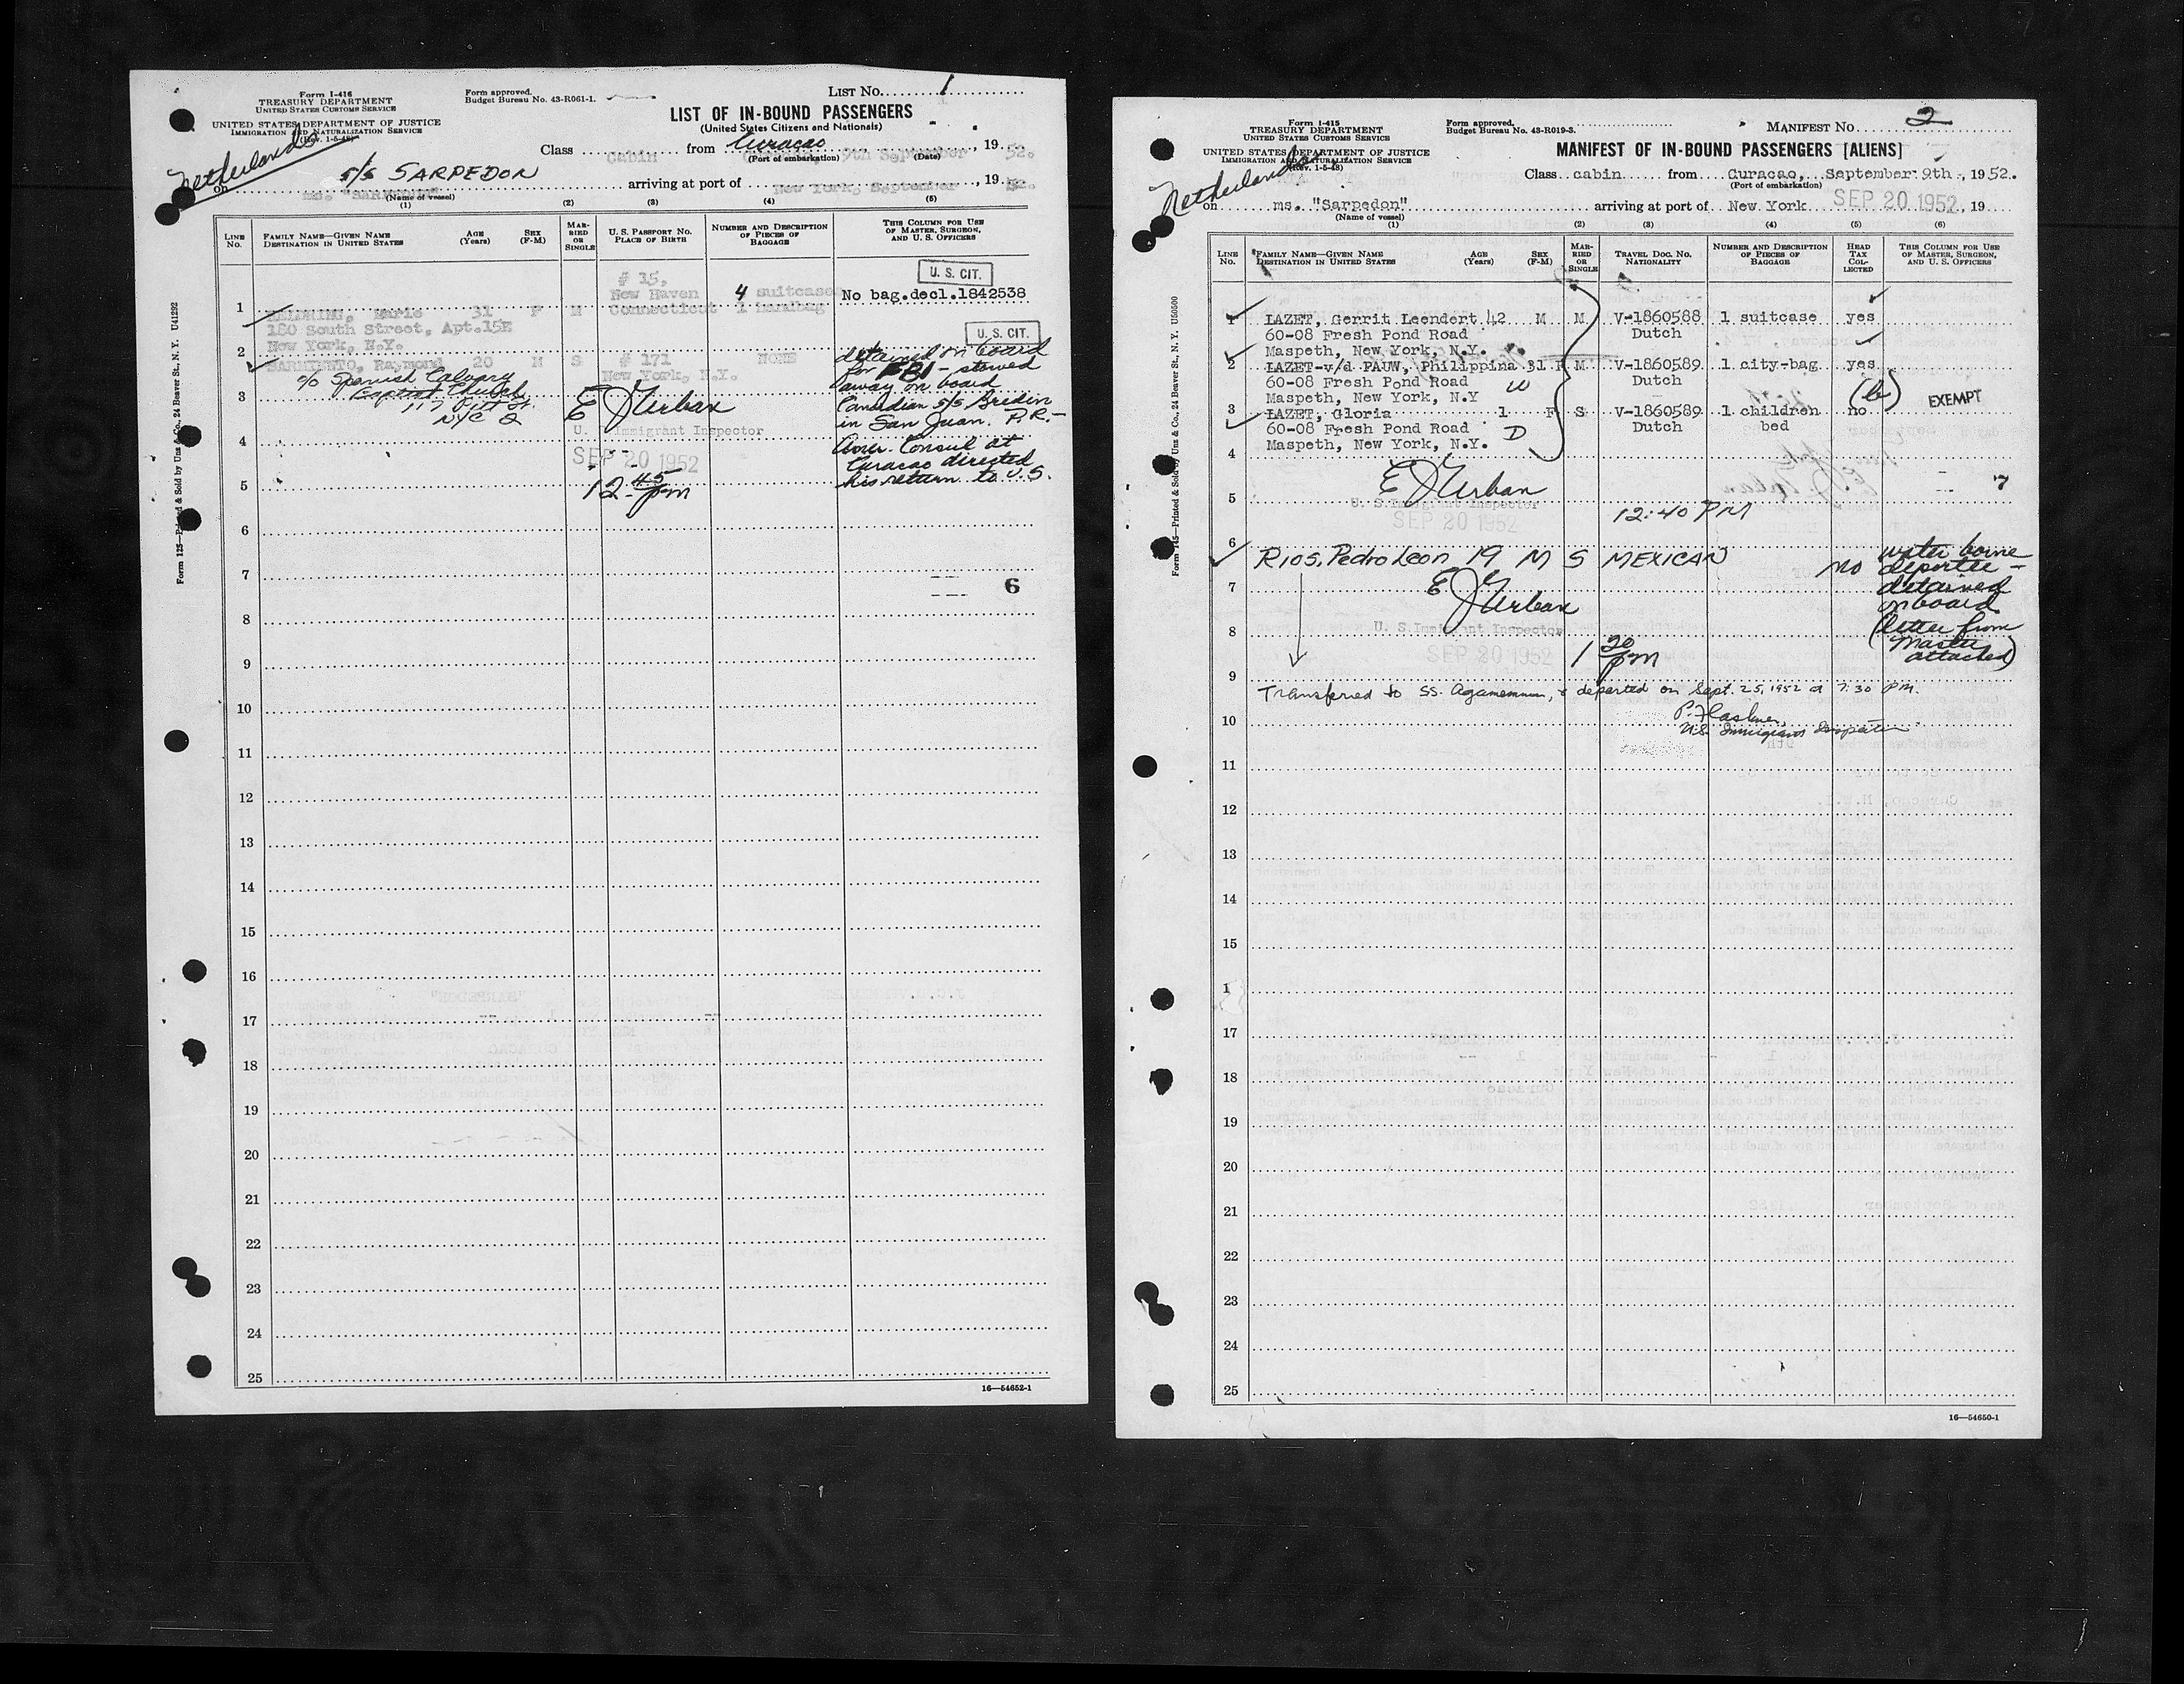 Form I-416
TREASURY DEPARTMENT
UNITED STATES CUSTOMS SERVICE
UNITED STATES DEPARTMENT OF JUSTICE
IMMIGRATION AND NATURALIZATION SERVICE
(Rev. 1-5-48)
Form approved.
Budget Bureau No. 43-R061-1.
LIST No. 1
LIST OF IN-BOUND PASSENGERS
(United States Citizens and Nationals)
Netherlands
Class Cabin from Curacao 9th September, 1952.
(Port of embarkation) (Date)
on S/S SARPEDON arriving at port of New York, September, 1952.
ms. "SARPEDON"
(Name of vessel)
(1) (2) (3) (4) (5)
LINE No. FAMILY NAME—GIVEN NAME DESTINATION IN UNITED STATES AGE (Years) SEX (F-M) MARRIED OR SINGLE U. S. PASSPORT No. PLACE OF BIRTH NUMBER AND DESCRIPTION OF PIECES OF BAGGAGE THIS COLUMN FOR USE OF MASTER, SURGEON, AND U. S. OFFICERS
U. S. CIT.
# 15,
New Haven 4 suitcase No bag.decl.1842538
1 Marie 31 F M Connecticut 1 handbag
180 South Street, Apt.15E
New York, N.Y.
U. S. CIT.
2 SARMIENTO, Raymond 20 M S # 171 NONE
New York, N.Y.
c/o Spanish Calvary
Baptist Church
117 Pitt St.
NYC 2
detained on board
for FBI - stowed
away on board
Canadian S/S Bredin
in San Juan. P.R. -
Amer. Consul at
Curacao directed
his return to U.S.
3
E J Urban
U. S. Immigrant Inspector
4
SEP 20 1952
12 45 pm
5
6
7
6
8
9
10
11
12
13
14
15
16
17
18
19
20
21
22
23
24
25
16—54652-1
Form 125—Printed & Sold by Unz & Co., 24 Beaver St., N. Y. U41292
Form I-415
TREASURY DEPARTMENT
UNITED STATES CUSTOMS SERVICE
UNITED STATES DEPARTMENT OF JUSTICE
IMMIGRATION AND NATURALIZATION SERVICE
(Rev. 1-5-48)
Form approved.
Budget Bureau No. 43-R019-3.
MANIFEST No. 2
MANIFEST OF IN-BOUND PASSENGERS [ALIENS]
Netherlands
Class cabin from Curacao, September 9th, 1952.
(Port of embarkation)
on ms. "Sarpedon" arriving at port of New York SEP 20 1952, 19
(Name of vessel)
(1) (2) (3) (4) (5) (6)
LINE No. FAMILY NAME—GIVEN NAME DESTINATION IN UNITED STATES AGE (Years) SEX (F-M) MARRIED OR SINGLE TRAVEL DOC. No. NATIONALITY NUMBER AND DESCRIPTION OF PIECES OF BAGGAGE HEAD TAX COLLECTED THIS COLUMN FOR USE OF MASTER, SURGEON, AND U. S. OFFICERS
1 LAZET, Gerrit Leendert 42 M M V-1860588 1 suitcase yes
60-08 Fresh Pond Road Dutch
Maspeth, New York, N.Y.
2 LAZET-v/d PAUW, Philippina 31 F M V-1860589 1 city-bag yes
60-08 Fresh Pond Road W Dutch
Maspeth, New York, N.Y (b) EXEMPT
3 LAZET, Gloria 1 F S V-1860589 1 children no
60-08 Fresh Pond Road D Dutch bed
Maspeth, New York, N.Y.
4
5
E J Urban
U. S. Immigrant Inspector
SEP 20 1952
12:40 PM
7
6
RIOS, Pedro Leon 19 M S MEXICAN no
water borne
deportee -
detained
on board
(letter from
Master
attached)
7
E J Urban
8
U. S. Immigrant Inspector
SEP 20 1952
1 20 pm
9
Transferred to SS. Agamemnon, & departed on Sept. 25, 1952 at 7:30 PM.
10
U.S. Immigrant Inspector
11
12
13
14
15
1
17
18
19
20
21
22
23
24
25
16—54650-1
Form 145—Printed & Sold by Unz & Co., 24 Beaver St., N. Y. U50500